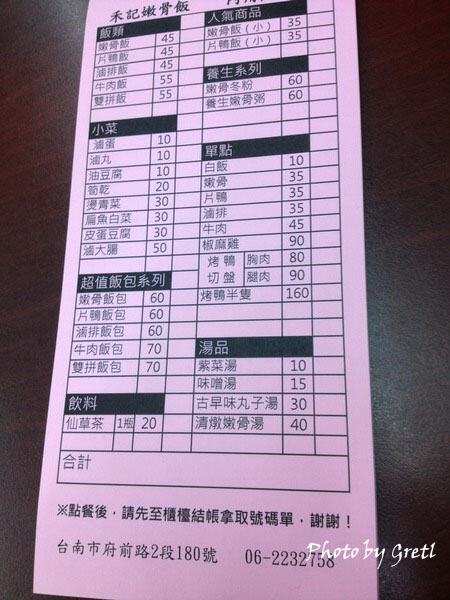 禾記嫩骨飯
飯類
嫩骨飯 45
片鴨飯 45
滷排飯 45
牛肉飯 55
雙拼飯 55
小菜
滷蛋 10
滷丸 10
油豆腐 10
筍乾 20
燙青菜 30
扁魚白菜 30
皮蛋豆腐 30
滷大腸 50
超值飯包系列
嫩骨飯包 60
片鴨飯包 60
滷排飯包 60
牛肉飯包 70
雙拼飯包 70
飲料
仙草茶 1瓶 20
人氣商品
嫩骨飯(小) 35
片鴨飯(小) 35
養生系列
嫩骨冬粉 60
養生嫩骨粥 60
單點
白飯 10
嫩骨 35
片鴨 35
滷排 35
牛肉 45
椒麻雞 90
烤鴨 胸肉 80
切盤 腿肉 90
烤鴨半隻 160
湯品
紫菜湯 10
味噌湯 15
古早味丸子湯 30
清燉嫩骨湯 40
合計
※點餐後，請先至櫃檯結帳拿取號碼單，謝謝！
台南市府前路2段180號 06-2232758
Photo by Gretl